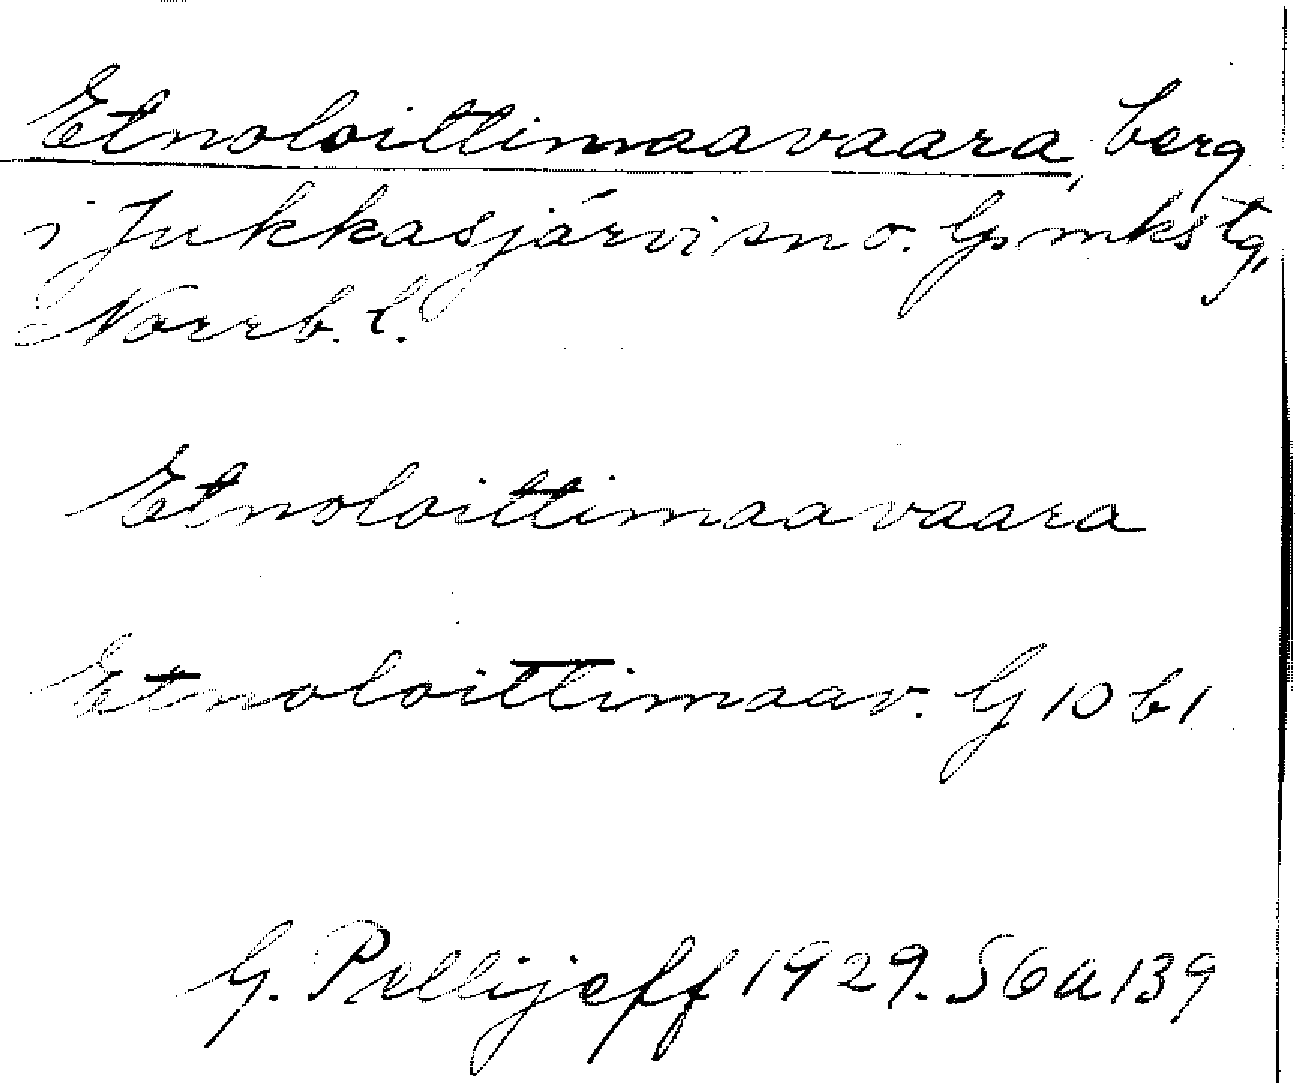 Etnoloittimaavaara, berg
i Jukkasjärvi sn o. Gp mkstg,
Norrb. l.
Etnoloittimaavaara
Etnoloittimaav. G 10 b1
G. Pellijeff 1929. S6a139